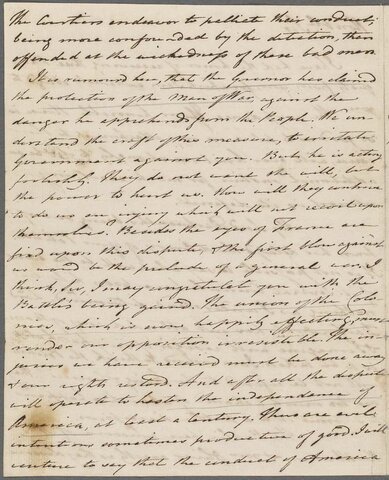 The Courtiers endeavor to palliate their conduct,
being more confounded by the detection, than
offended at the wickedness of these bad men.
It is rumoured here, that the Governor has claimed
the protection of the Man of War, against the
danger he apprehends from the People. We un-
derstand the craft of this measure, to irritate
Government against you. But he is acting
foolishly. They do not want the will, but
the power to hurt us. How will they contrive
to do us an injury which will not recoil upon
themselves? Besides the eyes of France are
fixed upon this dispute, & the first blow against
us would be the prelude of a general war. I
think, Sir, I may congratulate you with the
Battle's being gained. The union of the Colo-
nies, which is now happily effecting, must
render our opposition irresistible. The in-
juries we have received must be done away
& our rights restored. And after all the dispute
will operate to hasten the independence of
America, at least a Century. Thus are evil
intentions sometimes productive of good. I will
venture to say that the conduct of America